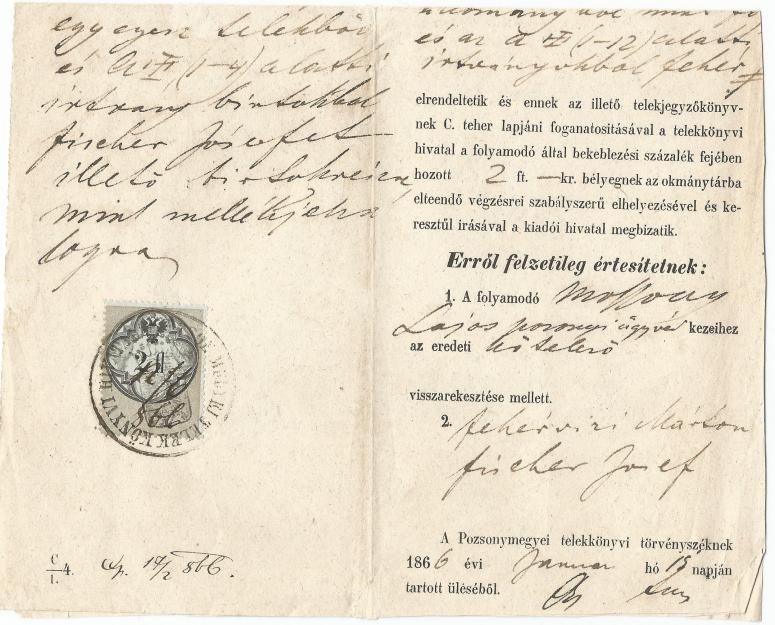 egy egesz telekből
és A VI (1-4) alatti
irtvany birtokbol
fischer Josefet
illető birtokrészre,
mint mellékjelza
logra
2 fl
TELEKKÖNYVI
C/1. 4.
17/2 866.
és az A (1-12) alatti
irtványokbol fehér
elrendeltetik és ennek az illető telekjegyzőkönyv-
nek C. teher lapjáni foganatositásával a telekkönyvi
hivatal a folyamodó által bekeblezési százalék fejében
hozott 2 ft. — kr. bélyegnek az okmánytárba
elteendő végzésrei szabályszerű elhelyezésével és ke-
resztűl irásával a kiadói hivatal megbizatik.
Erről felzetileg értesítetnek:
1. A folyamodó
Lajos posonyi ügyvéd kezeihez
az eredeti kötelező
visszarekesztése mellett.
2. fehérviri Márton
fischer Josef
A Pozsonymegyei telekkönyvi törvényszéknek
1866 évi Januar hó 15 napján
tartott üléséből.